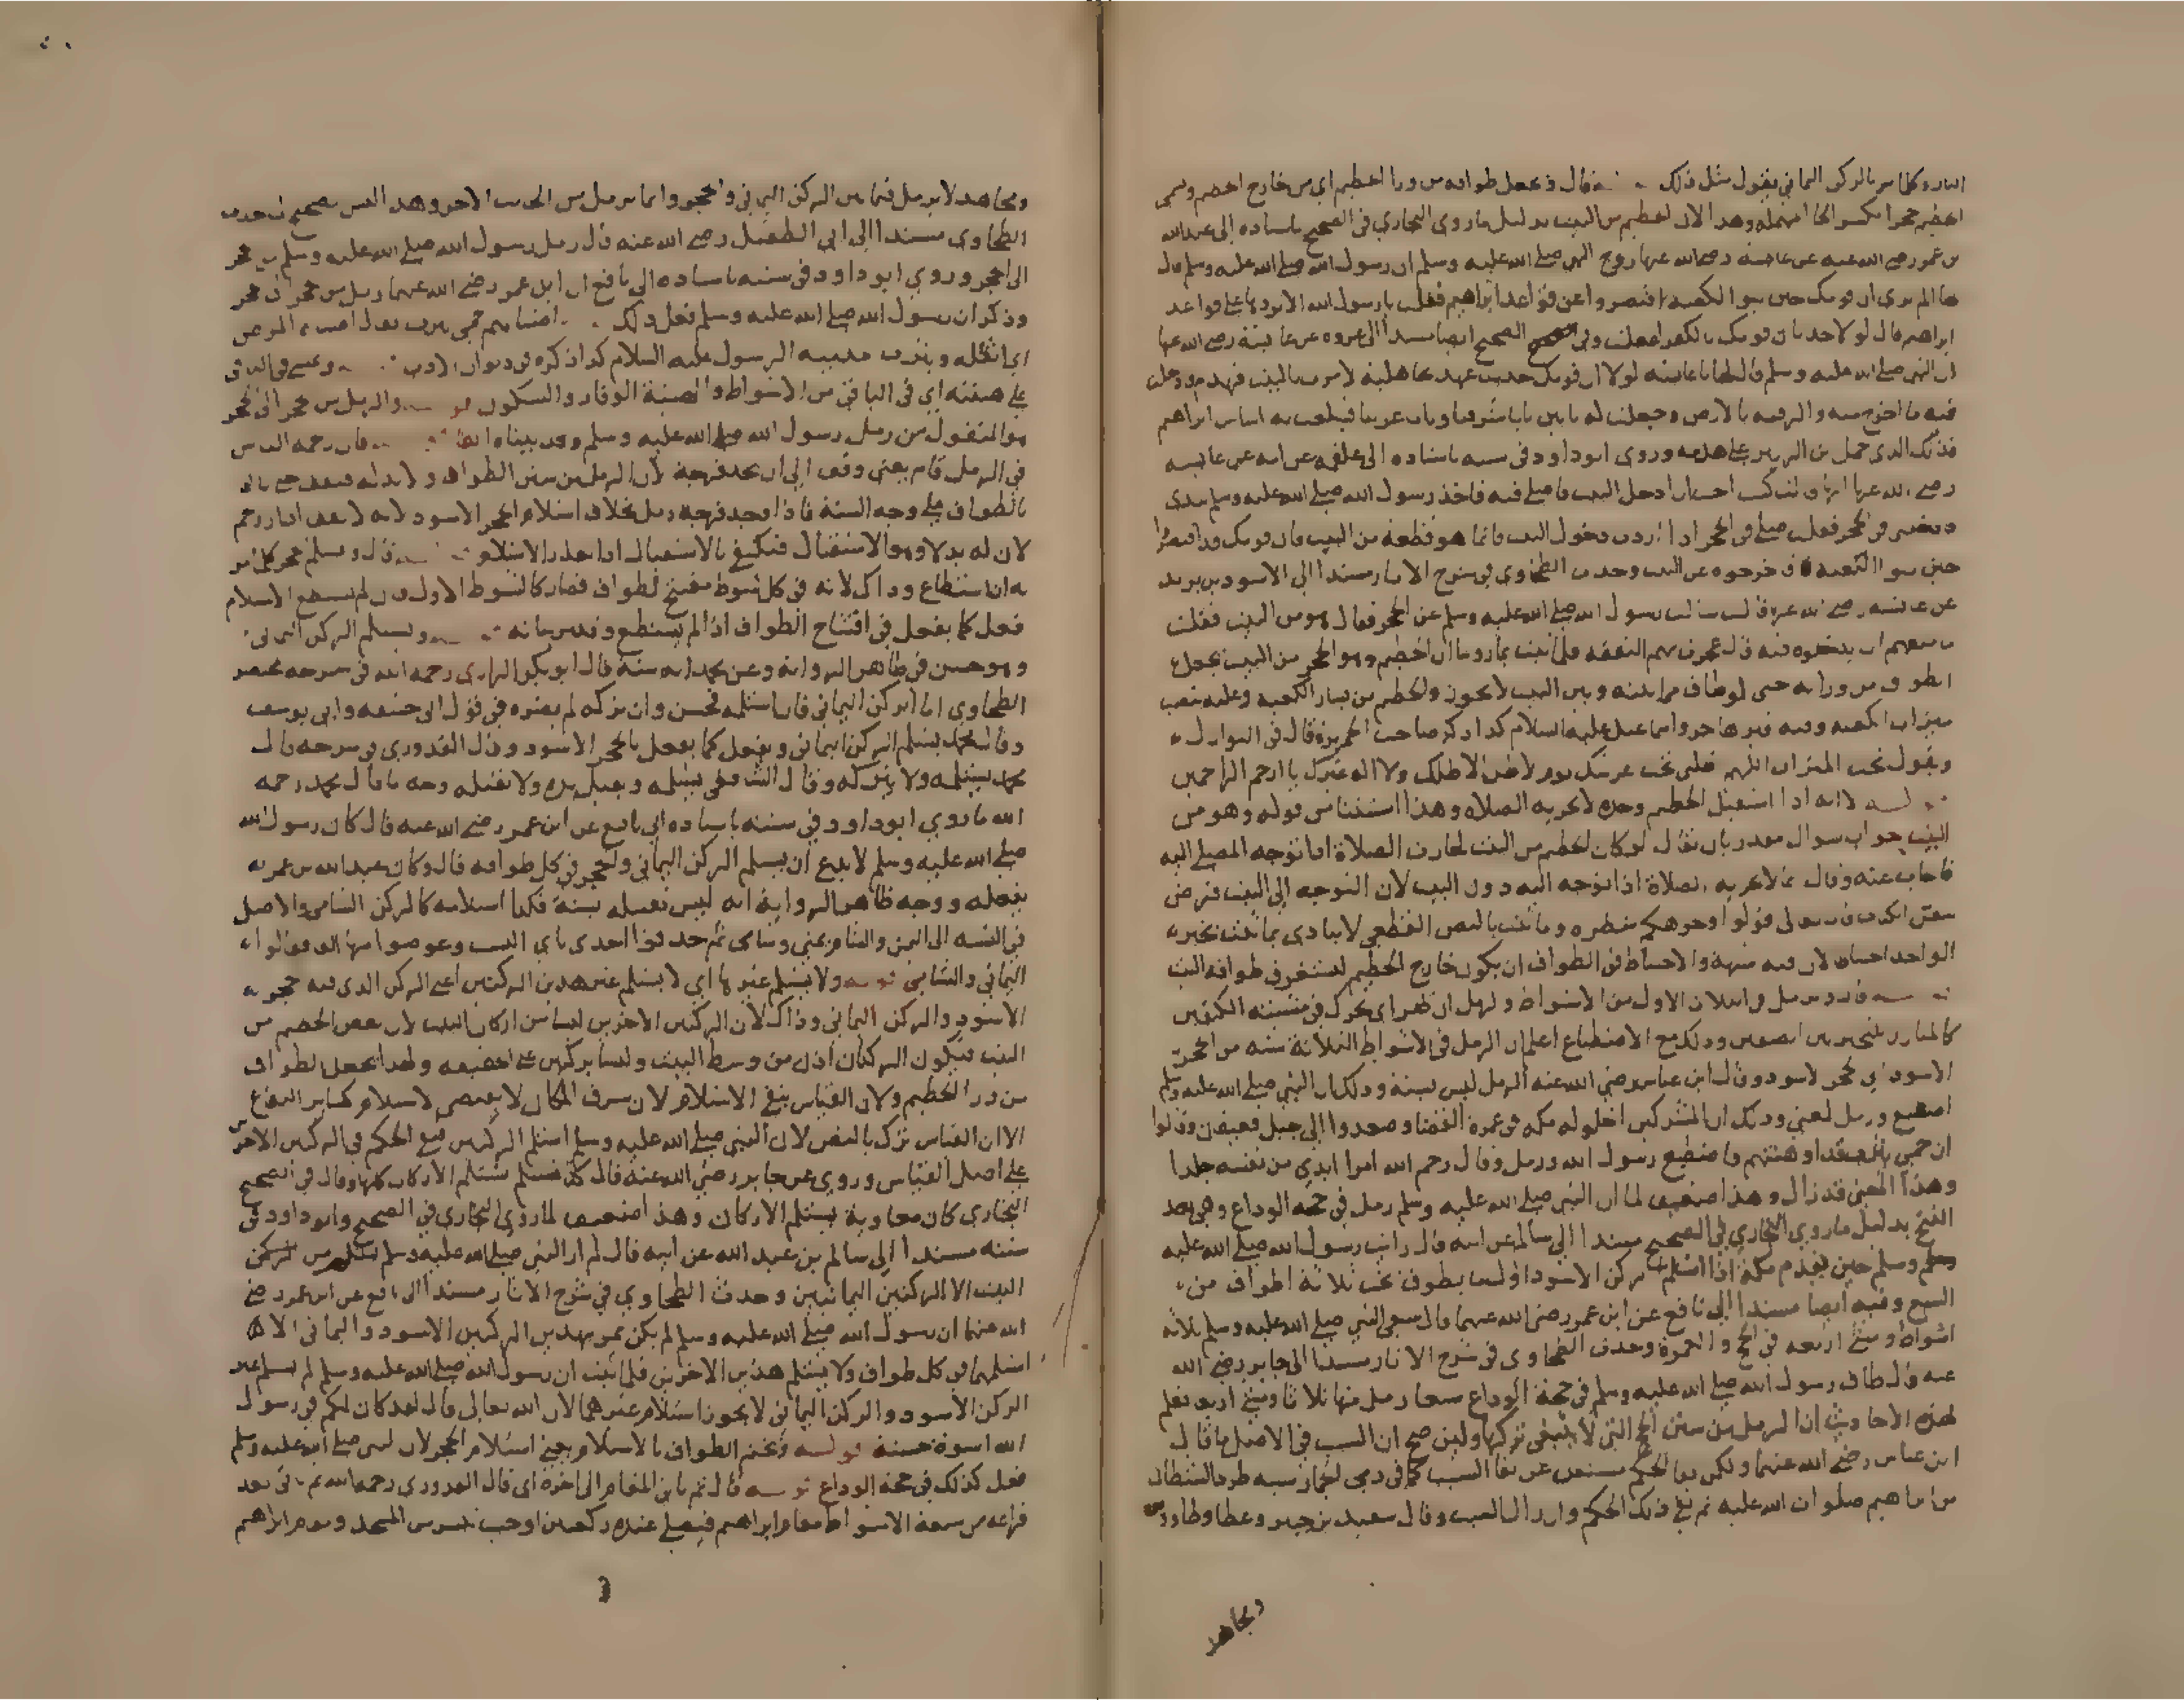 النار وكلما مر بالركن اليماني يقول مثل ذلك قال وجعل طوافه من ورا الحطيم اي من خارج الحطيم وسمي
الحطيم حجرا بكسر الحا المهملة وهذا لان الحطيم من البيت بدليل ما روى البخاري في الصحيح باسناده الى عبد الله
بن عمر رضي الله عنه عن عائشة رضي الله عنها زوج النبي صلى الله عليه وسلم ان رسول الله صلى الله عليه وسلم قال
لها الم تري ان قومك حين بنوا الكعبة اقتصروا عن قواعد ابراهيم فقلت يا رسول الله الا تردها على قواعد
ابراهيم قال لولا حدثان قومك بالكفر لفعلت وفي الصحيح ايضا مسندا الى عروه عن عائشة رضي الله عنها
ان النبي صلى الله عليه وسلم قال لها يا عائشه لولا ان قومك حديث عهد بجاهلية لامرت بالبيت فهدم فادخلت
فيه ما اخرج منه والزقته بالارض وجعلت له بابين بابا شرقيا وبابا غربيا فبلغت به اساس ابراهيم
فذلك الذي حمل بن الزبير على هدمه وروى ابو داود في سننه باسناده الى علقمه عن امه عن عائشه
رضي الله عنها انها قالت كنت احب ان ادخل البيت فاصلي فيه فاخذ رسول الله صلى الله عليه وسلم بيدي
فادخلني في الحجر فقال صلي في الحجر اذا اردت دخول البيت فانما هو قطعة من البيت فان قومك اقتصروا
حين بنوا الكعبة فاخرجوه عن البيت وحدث الطحاوي في شرح الاثار مسندا الى الاسود بن يزيد
عن عائشه رضي الله عنها قالت سالت رسول الله صلى الله عليه وسلم عن الحجر فقال هو من البيت فقلت
ما منعهم ان يدخلوه فيه قال عجزت بهم النفقه فلما ثبت بما روينا ان الحطيم وهو الحجر من البيت يجعل
الطواف من ورائه حتى لو طاف فيما بينه وبين البيت لا يجوز والحطيم من يسار الكعبة وعليه نصب
ميزاب الكعبه وفيه قبر هاجر واسماعيل عليهما السلام كذا ذكره صاحب قال في النوازل
ويقول تحت الميزاب اللهم ظلني تحت عرشك يوم لا ظل الا ظلك ولا اله غيرك يا ارحم الراحمين
لانه اذا استقبل الحطيم وحده لا تجزيه الصلاه وهذا استثنا من قوله وهو من
البيت جواب سوال مقدر بان يقال لو كان الحطيم من البيت لجازت الصلاة اذا توجه المصلي اليه
فاجاب عنه وقال انما لا تجزيه الصلاة اذا توجه اليه دون البيت لان التوجه الى البيت فرض
بنص الكتاب قال تعالى فولوا وجوهكم شطره وما ثبت بالنص القطعي لا يتادى بما ثبت بخبر
الواحد احتياطا لان فيه شبهة والاحتياط في الطواف ان يكون خارج الحطيم
قال ويرمل في الثلاث الاول من الاشواط والرمل ان يهز اي يحرك في مشيته الكتفين
كالمبارز يتبختر بين الصفين وذلك مع الاضطباع اعلم ان الرمل في الاشواط الثلاثة سنه من الحجر
الاسود الى الحجر الاسود وقال ابن عباس رضي الله عنه الرمل ليس بسنة وذلك ان النبي صلى الله عليه وسلم
اضطبع ورمل لمعنى وذلك ان المشركين اخلوا له مكه في عمرة القضا وصعدوا الى جبل قعيقعان وقالوا
ان حمى يثرب قد اوهنتهم فاضطبع رسول الله ورمل وقال رحم الله امرا ابدى من نفسه جلدا
وهذا المعنى قد زال وهذا ضعيف لما ان النبي صلى الله عليه وسلم رمل في حجة الوداع وهي بعد
الفتح بدليل ما روى البخاري في الصحيح مسندا الى سالم عن ابيه قال رايت رسول الله صلى الله عليه
وسلم حين يقدم مكة اذا استلم الركن الاسود اول ما يطوف يخب ثلاثة اطواف من
السبع وفيه ايضا مسندا الى نافع عن ابن عمر رضي الله عنهما قال سعى النبي صلى الله عليه وسلم ثلاثه
اشواط ومشى اربعه في الحج والعمرة وحدث الطحاوي في شرح الاثار مسندا الى جابر رضي الله
عنه قال طاف رسول الله صلى الله عليه وسلم في حجة الوداع سبعا رمل منها ثلاثا ومشى اربعا فعلم
بهذه الاحاديث ان الرمل من سنن الحج التي لا ينبغي تركها ولئن صح ان السبب في الاصل ما قال
ابن عباس رضي الله عنهما ولكن بقا الحكم مستغن عن بقا السبب كما في رمي الجمار سببه طرد الشيطان
من ابراهيم صلوات الله عليه ثم بقي ذلك الحكم وان زال السبب وقال سعيد بن جبير وعطا وطاوس
ومجاهد
ومجاهد لا يرمل فيما بين الركن اليماني والحجر وانما يرمل من الجانب الاخر وهذا ليس بصحيح لما حدث
الطحاوي مسندا الى ابي الطفيل رضي الله عنه قال رمل رسول الله صلى الله عليه وسلم من الحجر
الى الحجر وروى ابو داود في سننه باسناده الى نافع ان ابن عمر رضي الله عنهما رمل من الحجر الى الحجر
وذكر ان رسول الله صلى الله عليه وسلم فعل ذلك اضناهم حمى يثرب يقال اضناه المرض
اي اثقله ويثرب مدينه الرسول عليه السلام كذا ذكره في ديوان الادب ويمشي في الباقي
على هينته اي في الباقي من الاشواط والهينة الوقار والسكون قوله والرمل من الحجر الى الحجر
هو المنقول من رمل رسول الله صلى الله عليه وسلم وقد بيناه انفا فان زحمه الناس
في الرمل قام يعني وقف الى ان يجد فرجة لان الرمل من سنن الطواف ولا بدل له فيقف حتى ياتي
بالطواف على وجه السنة فاذا وجد فرجة رمل بخلاف استلام الحجر الاسود لانه لا يقف اذا زوحم
لان له بدلا وهو الاستقبال فيكتفي بالاستقبال اذا تعذر الاستلام قال ويستلم الحجر كلما مر
به ان استطاع وذاك لانه في كل شوط مفتتح لطواف فصار كالشوط الاول فان لم يستطع الاستلام
فعل كما يفعل في افتتاح الطواف اذا لم يستطع وقد مر بيانه ويستلم الركن اليماني
وهو حسن في ظاهر الرواية وعن محمد انه سنة قال ابو بكر الرازي رحمه الله في شرحه مختصر
الطحاوي اما الركن اليماني فان استلمه فحسن وان تركه لم يضره في قول ابي حنيفه وابي يوسف
وقال محمد يستلم الركن اليماني ويفعل كما يفعل بالحجر الاسود وقال القدوري في شرحه قال
محمد يستلمه ولا يتركه وقال الشافعي يستلمه ويقبل يده ولا يقبله وجه ما قال محمد رحمه
الله ما روى ابو داود في سننه باسناده الى نافع عن ابن عمر رضي الله عنه قال كان رسول الله
صلى الله عليه وسلم لا يدع ان يستلم الركن اليماني والحجر في كل طوافه قال وكان عبد الله بن عمر
يفعله ووجه ظاهر الرواية انه ليس تقبيله بسنة فكذا استلامه كالركن الشامي والاصل
في النسبه الى اليمن والشام يمني وشامي ثم حذفوا احدى ياي النسب وعوضوا منها الف فقالوا
اليماني والشامي قوله ولا يستلم غيرها اي لا يستلم غير هذين الركنين اعني الركن الذي فيه الحجر
الاسود والركن اليماني وذاك لان الركنين الاخرين ليسا من اركان البيت لان بعض الحطيم من
البيت فيكون الركنان اذن من وسط البيت وليسا بركنين على الحقيقه ولهذا يجعل الطواف
من ورا الحطيم ولان القياس ينفي الاستلام لان شرف المكان لا يقتضي الاستلام كساير البقاع
الا ان القياس ترك بالنص لان النبي صلى الله عليه وسلم استلم الركنين فبقي الحكم في الركنين الاخرين
على اصل القياس وروي عن جابر رضي الله عنه قال كنا نستلم الاركان كلها وقال في الصحيح
البخاري كان معاوية يستلم الاركان وهذا ضعيف لما روى البخاري في الصحيح وابو داود في
سننه مسندا الى سالم بن عبد الله عن ابيه قال لم ار النبي صلى الله عليه وسلم يستلم من
البيت الا الركنين اليمانيين وحدث الطحاوي في شرح الاثار مسندا الى نافع عن ابن عمر رضي
الله عنهما ان رسول الله صلى الله عليه وسلم لم يكن يمر بهذين الركنين الاسود واليماني الا
استلمهما في كل طواف ولا يستلم هذين الاخرين فلما ثبت ان رسول الله صلى الله عليه وسلم لم يستلم غير
الركن الاسود والركن اليماني لا يجوز استلام غيرهما لان الله تعالى قال لقد كان لكم في رسول
الله اسوة حسنة قوله ويختم الطواف بالاستلام يعني استلام الحجر لان النبي صلى الله عليه وسلم
فعل كذلك في حجة الوداع قوله قال ثم ياتي المقام الى اخره اي قال القدوري رحمه الله ثم ياتي بعد
فراغه من سبعة الاشواط مقام ابراهيم فيصلي عنده ركعتين او حيث تيسر من المسجد ومقام ابراهيم